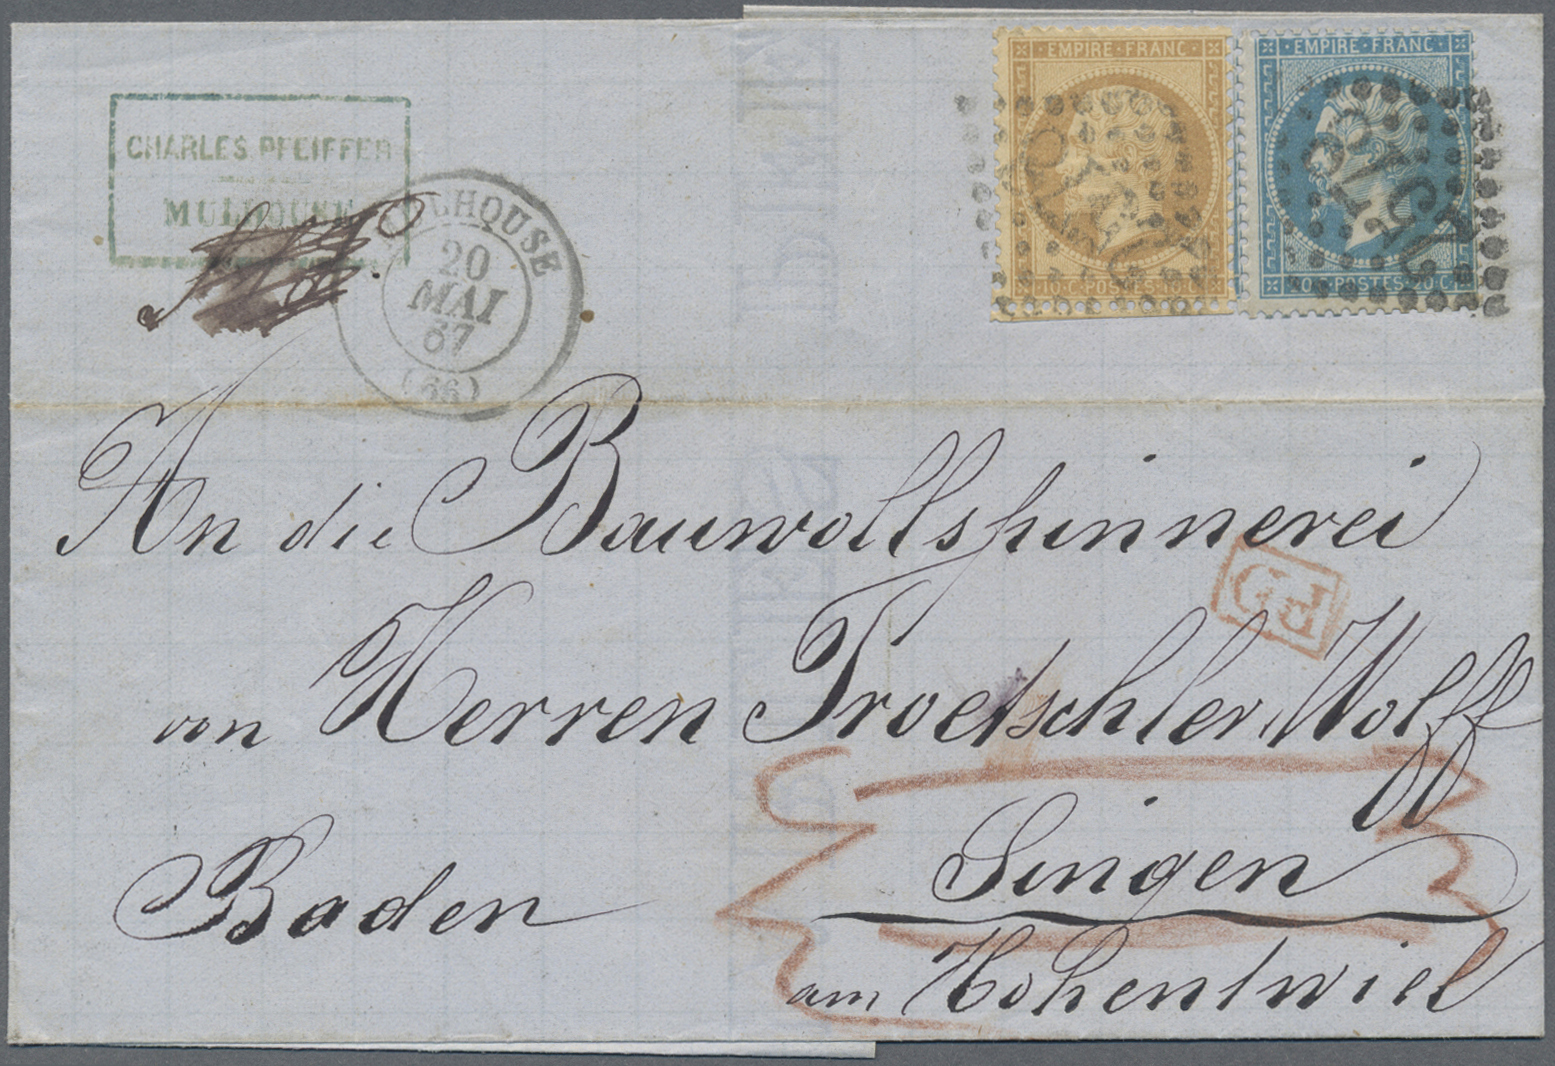 EMPIRE · FRANC
10 · C · POSTES · 10 · C
EMPIRE · FRANC
20 C · POSTES · 20 C
CHARLES PFEIFFER
MULHOUSE
MULHOUSE
20
MAI
67
(66)
An die Bauwollspinnerei
PD
von Herren Troetschler, Wolff
Singen
Baden
am Hohentwiel